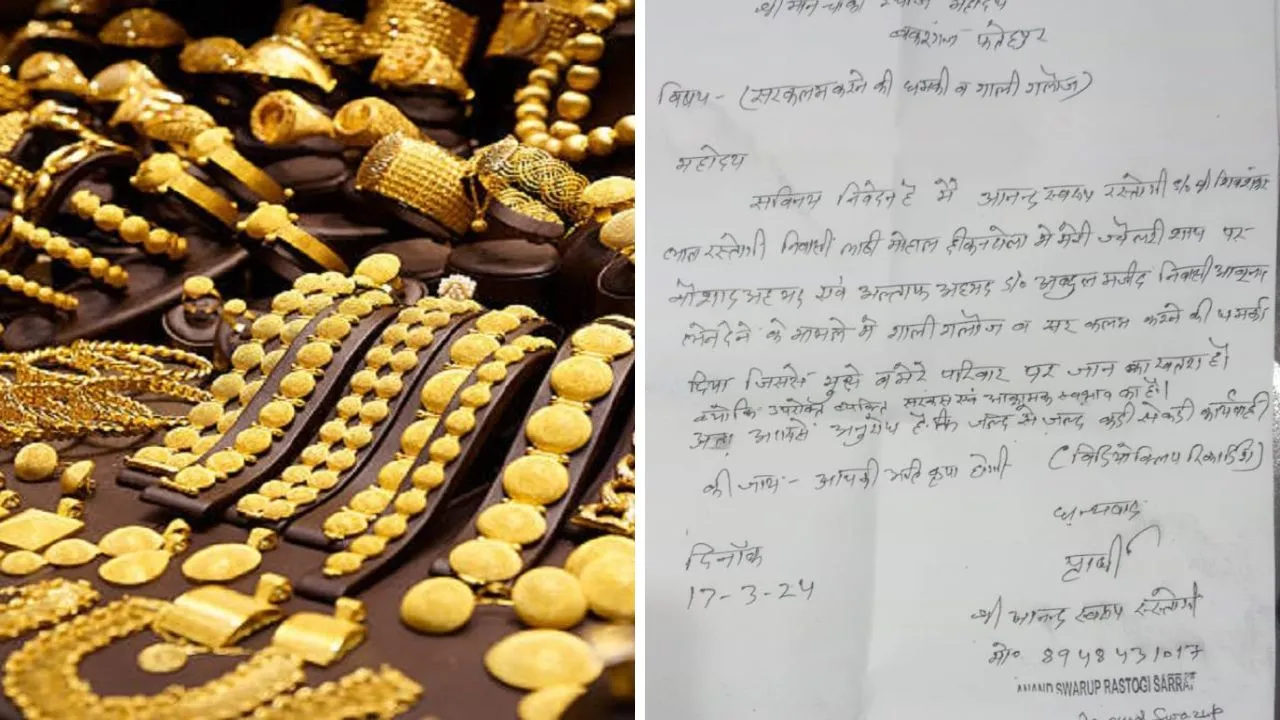 श्रीमान चौकी इंचार्ज महोदय
बाकरगंज फतेहपुर
विषय - (सरकलम करने की धमकी व गाली गलौज)
महोदय
सविनय निवेदन है मै आनन्द स्वरूप रस्तोगी S/o श्री शिवशंकर
लाल रस्तोगी निवासी लाठी मोहाल मे मेरी ज्वैलरी शाप पर
नौशाद अहमद एवं अल्ताफ अहमद S/o अब्दुल मजीद निवासी
लेनदेन के मामले मे गाली गलौज व सर कलम करने की धमकी
दिया जिससे मुझे व मेरे परिवार पर जान का खतरा है।
क्योंकि उपरोक्त व्यक्ति एवं आक्रामक स्वभाव का है।
अतः आपसे अनुरोध है कि जल्द से जल्द कड़ी से कड़ी कार्यवाही
की जाय - आपकी अति कृपा होगी (विडियो क्लिप रिकार्डिंग)
धन्यवाद
दिनाँक
प्रार्थी
17-3-24
श्री आनन्द स्वरूप रस्तोगी
मो० 8948431017
ANAND SWARUP RASTOGI SARRAF